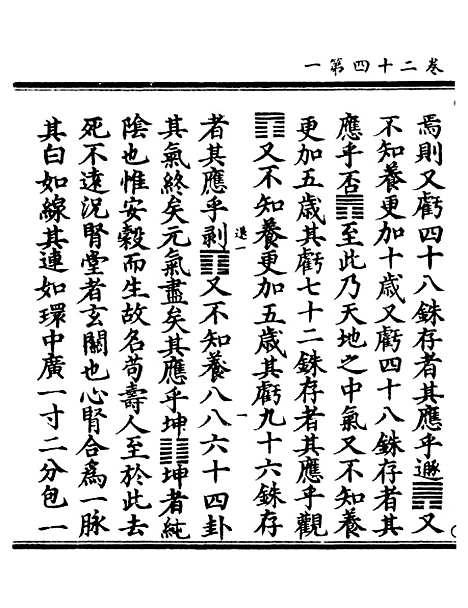 卷二十四第一
焉則又虧四十八銖存者其應乎遯䷠又
不知養更加十歲又虧四十八銖存者其
應乎否䷋至此乃天地之中氣又不知養
更加五歲其虧七十二銖存者其應乎觀
䷓又不知養更加五歲其虧九十六銖存
一
者其應乎剥䷖又不知養八八六十四卦
其氣終矣元氣盡矣其應乎坤䷁坤者純
陰也惟安穀而生故名苟壽人至於此去
死不遠況腎堂者玄關也心腎合爲一脉
其白如線其連如環中廣一寸二分包一